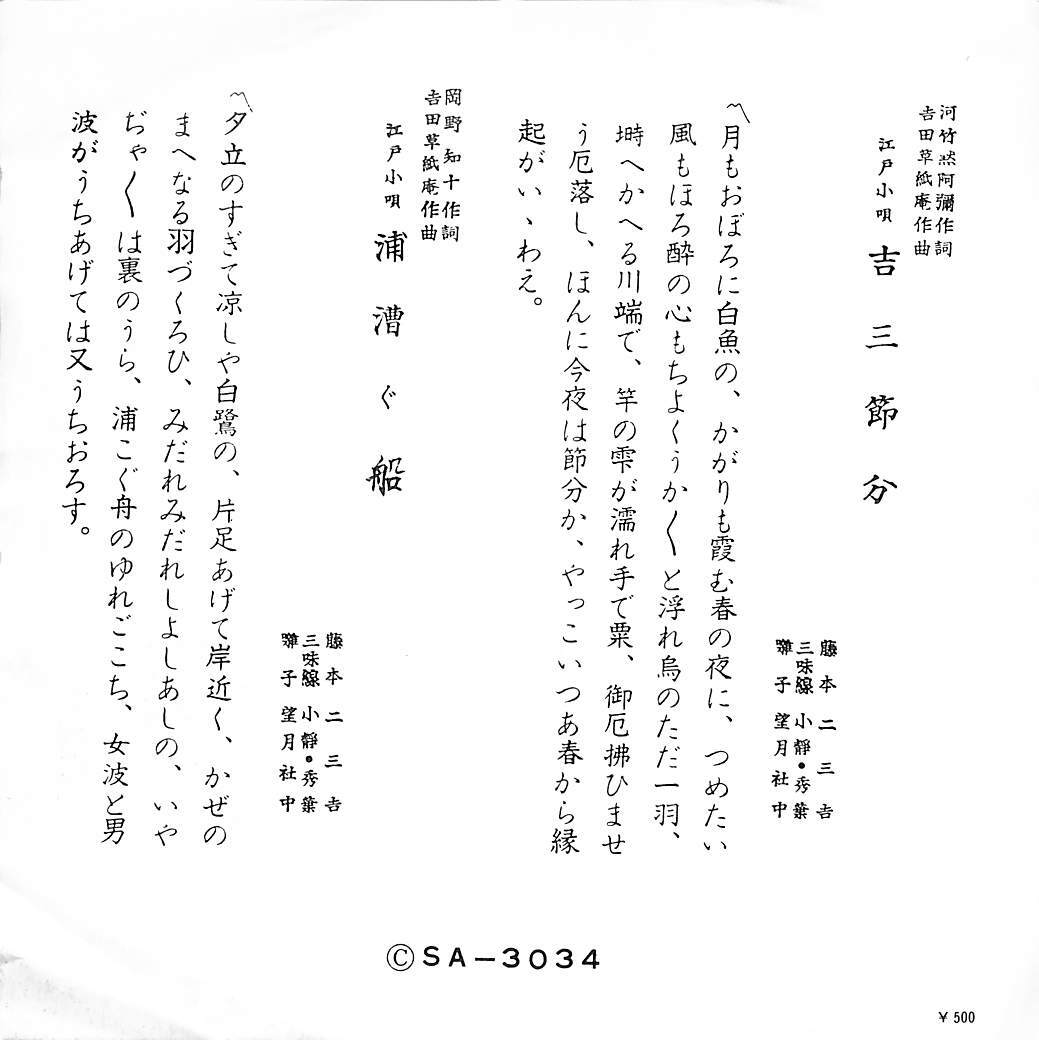 河竹黙阿彌作詞
吉田草紙庵作曲
江戸小唄 吉三節分
藤本二三吉
三味線 小靜・秀葉
囃子 望月社中
〽月もおぼろに白魚の、かがりも霞む春の夜に、つめたい
風もほろ酔の心もちよくうか〱と浮れ烏のただ一羽、
塒へかへる川端で、竿の雫が濡れ手で粟、御厄拂ひませ
う厄落し、ほんに今夜は節分か、やっこいつあ春から縁
起がいゝわえ。
岡野知十作詞
吉田草紙庵作曲
江戸小唄 浦漕ぐ船
藤本二三吉
三味線 小靜・秀葉
囃子 望月社中
〽夕立のすぎて凉しや白鷺の、片足あげて岸近く、かぜの
まへなる羽づくろひ、みだれみだれしよしあしの、いや
ぢゃ〱は裏のうら、浦こぐ舟のゆれごこち、女波と男
波がうちあげては又うちおろす。
ⒸSA-3034
¥500